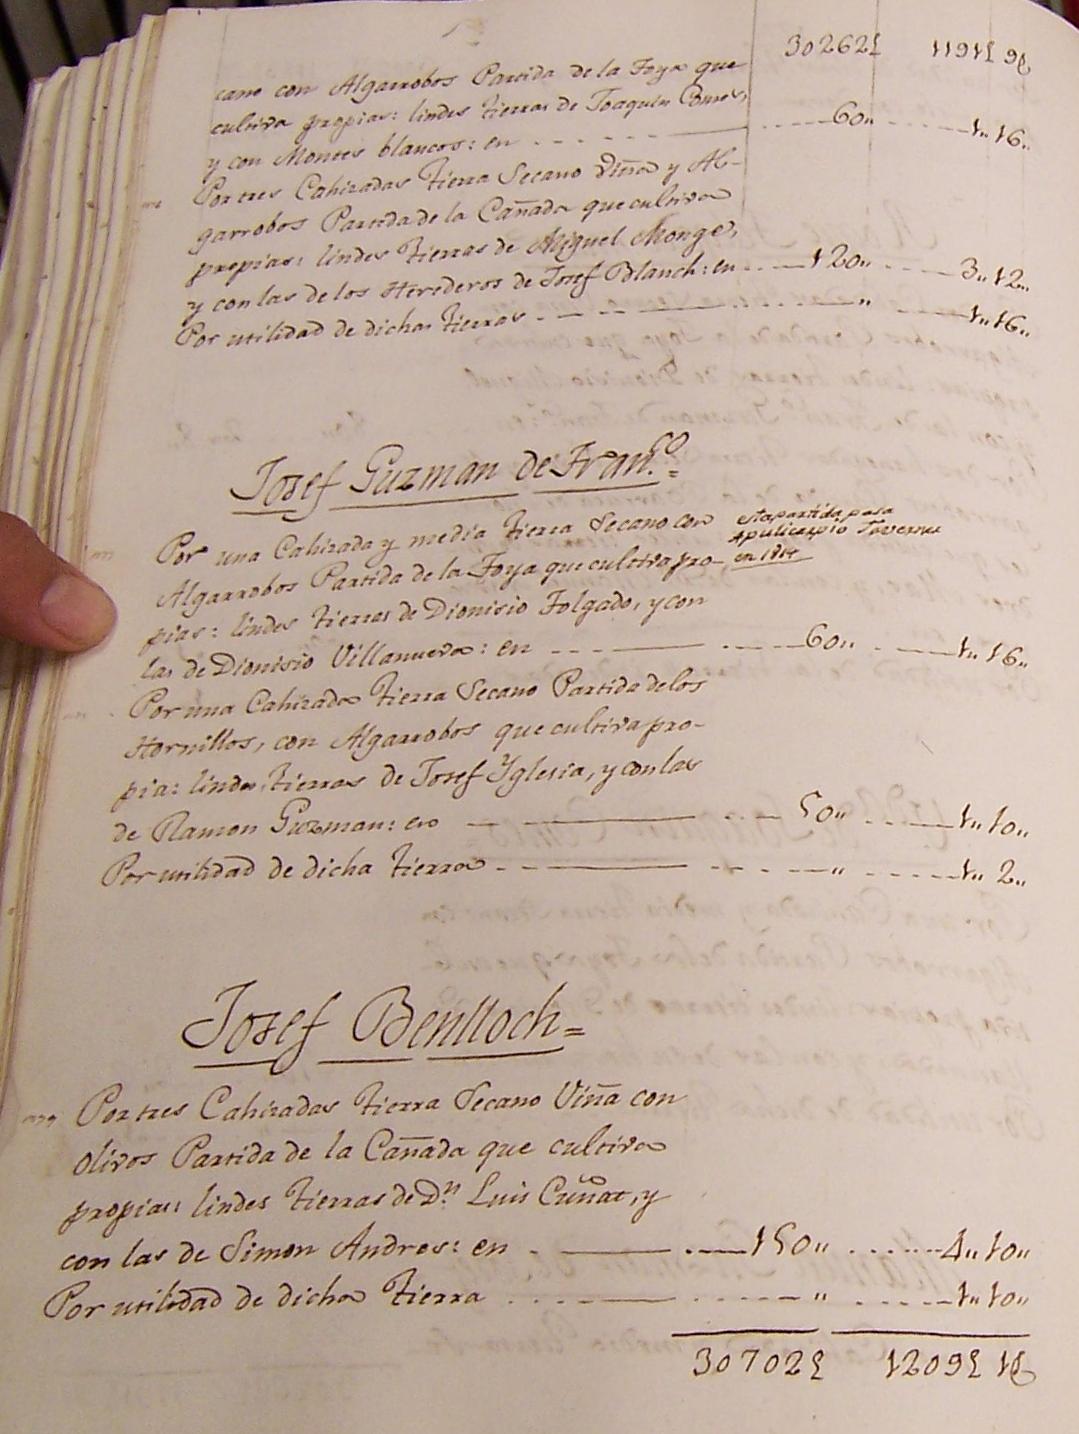 30262£ 1191£ 9₰
cano con Algarrobos Partida de la Foya que
cultiva propias: lindes tierras de Joaquin Comes,
y con Montes blancos: en 60,, 1,, 16,,
Por tres Cahizadas tierra Secano Viña y Al-
garrobos Partida de la Cañada que cultiva
propias: lindes tierras de Miguel Monge,
y con las de los Herederos de Josef Blanch: en 120,, 3,, 12,,
Por utilidad de dichas tierras ,, 1,, 16,,
Josef Guzman de Fran.co =
Por una Cahizada y media tierra Secano con
esta partida pasa
Algarrobos Partida de la Foya que cultiva pro-
a Pulicarpio Taverner
en 1814
pias: lindes tierras de Dionisio Folgado, y con
las de Dionisio Villanueva: en 60,, 1,, 16,,
Por una Cahizada tierra Secano Partida de los
Hornillos, con Algarrobos que cultiva pro-
pia: lindes tierras de Josef Yglesia, y con las
de Ramon Guzman: en 50,, 1,, 10,,
Por utilidad de dicha tierra ,, 1,, 2,,
Josef Benlloch =
Por tres Cahizadas tierra Secano Viña con
olivos Partida de la Cañada que cultiva
propias: lindes tierras de Dn. Luis Cuñat, y
con las de Simon Andres: en 150,, 4,, 10,,
Por utilidad de dicha tierra ,, 1,, 10,,
30702£ 1209£ 1₰